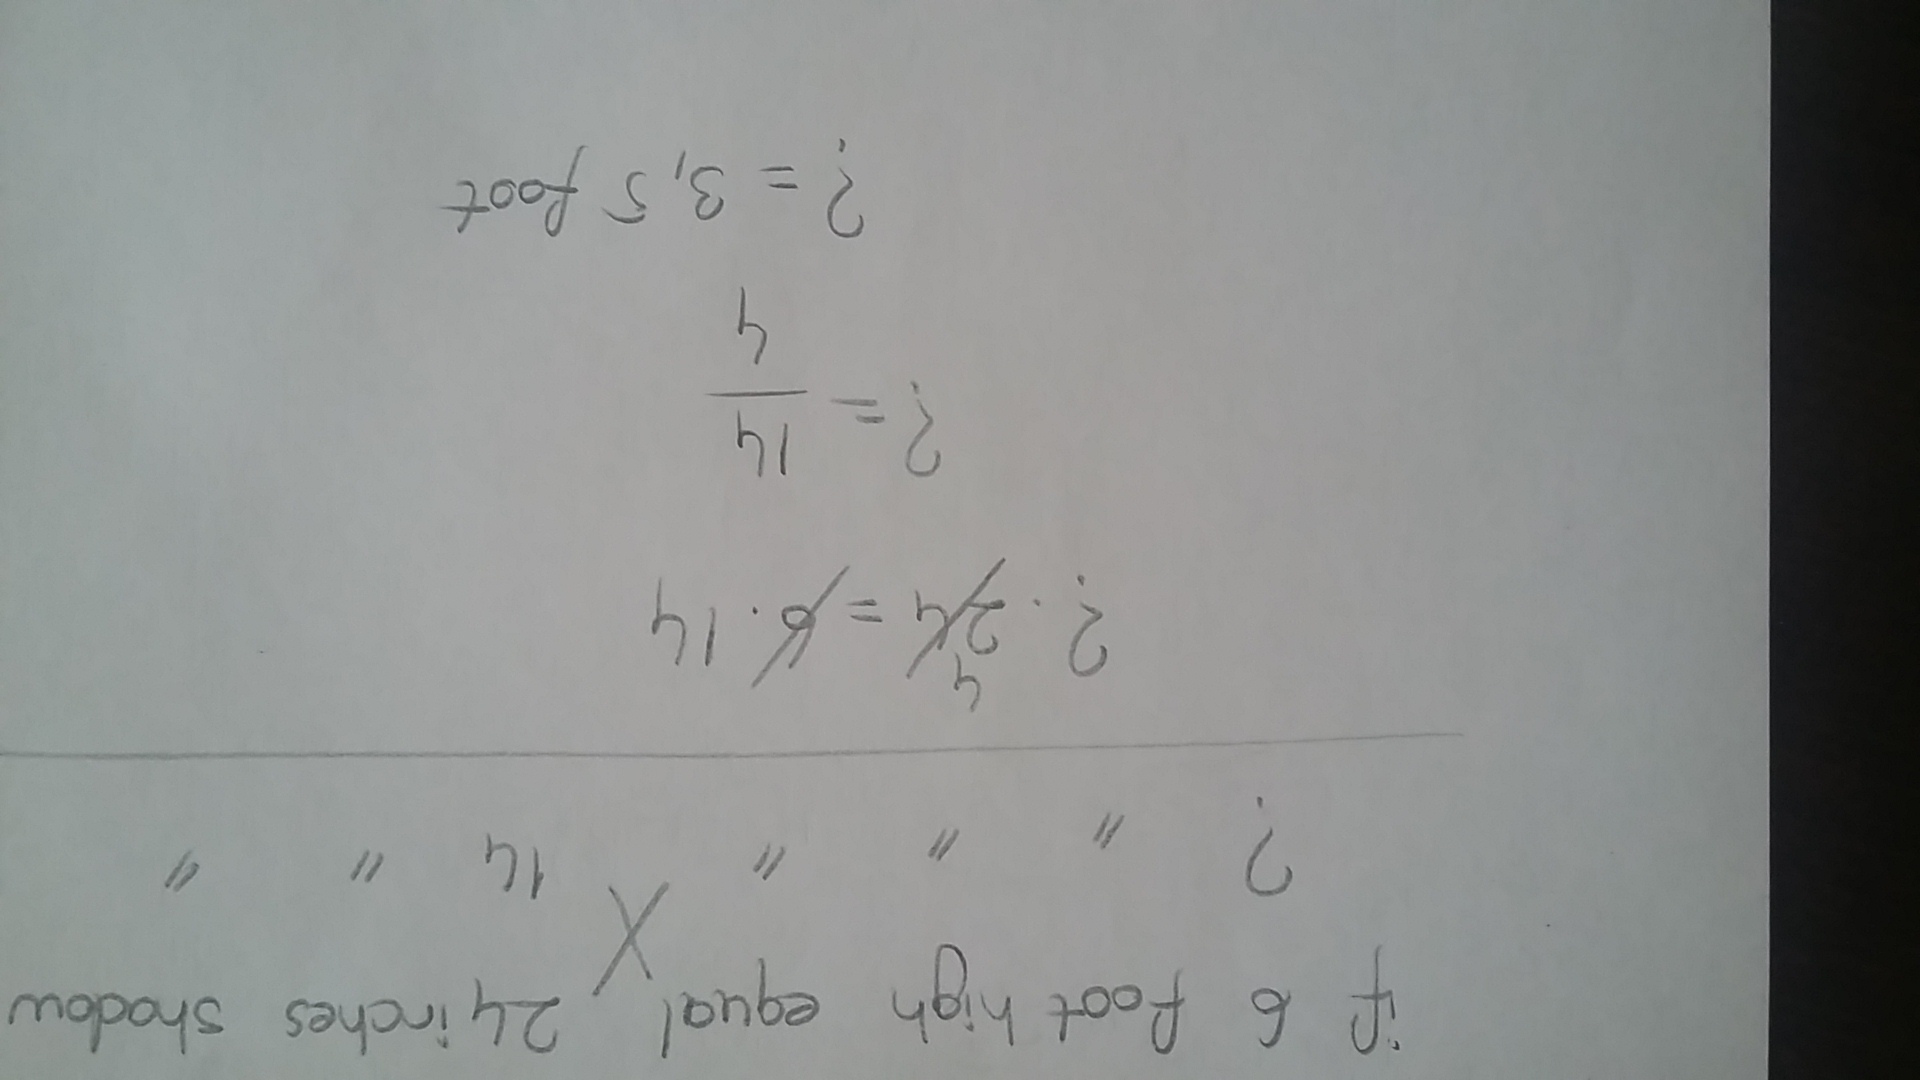 if 6 foot high equal 24 inches shadow
? " " " 14 " "
? . 24 4 = 6 . 14
? = 14/4
? = 3,5 foot